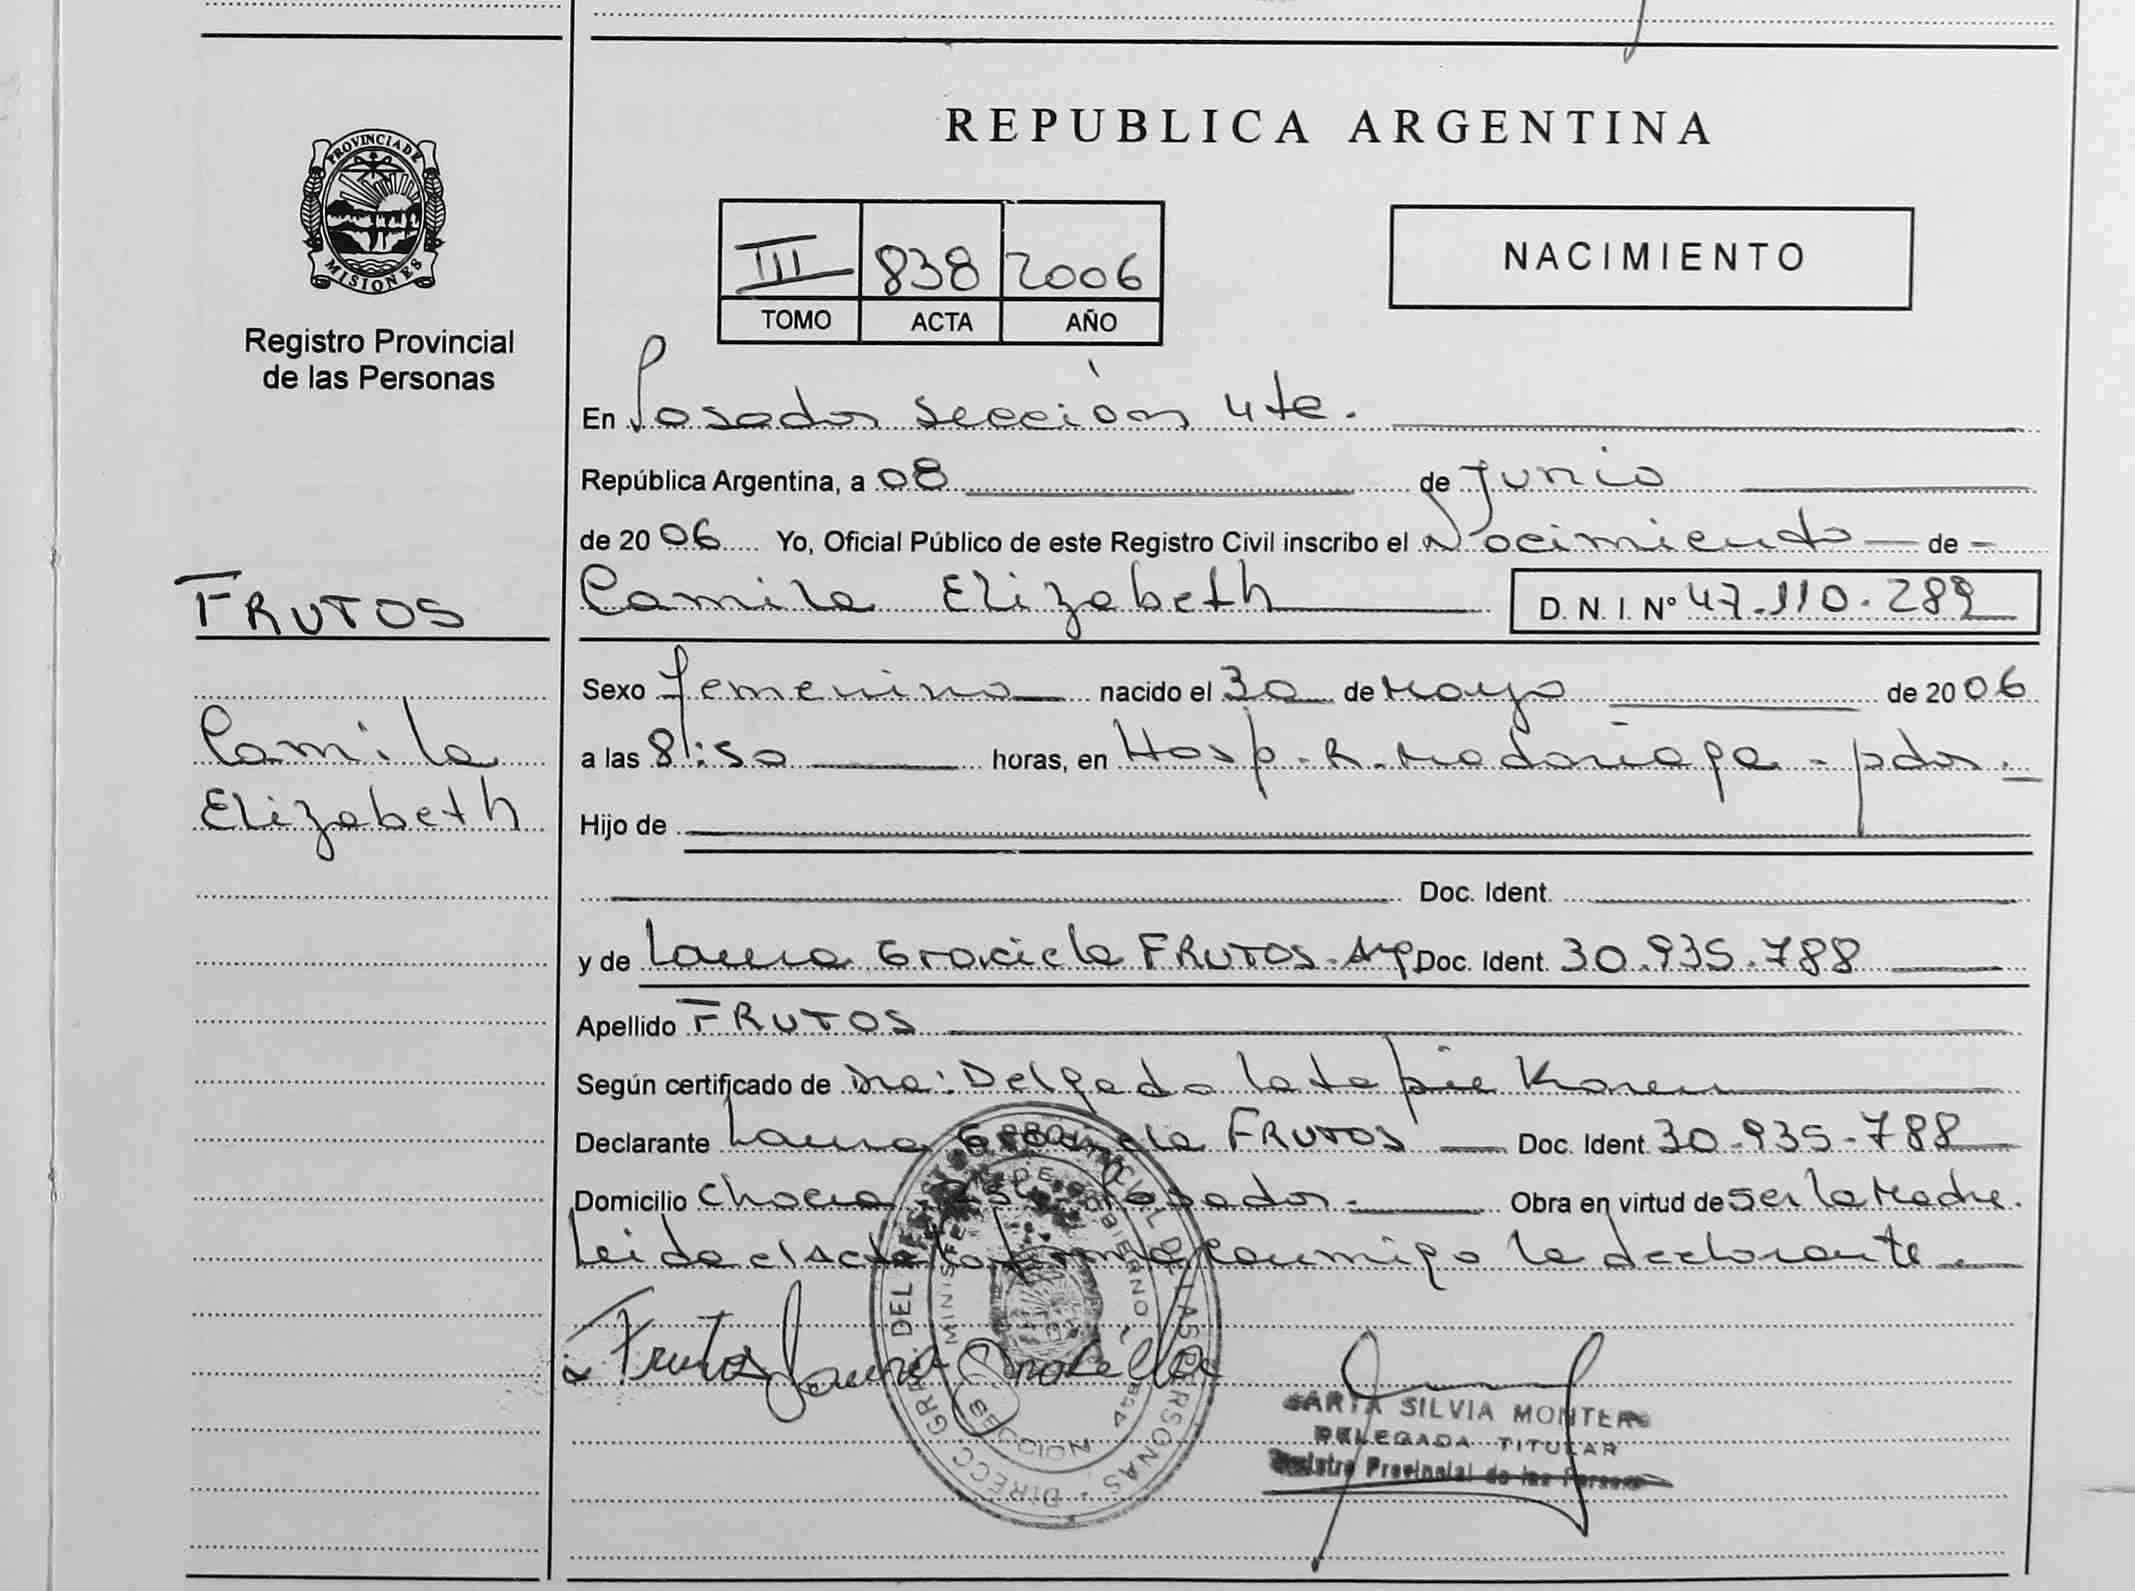 PROVINCIA DE
MISIONES
Registro Provincial
de las Personas
REPUBLICA ARGENTINA
III 838 2006
TOMO ACTA AÑO
NACIMIENTO
En Posadas sección 4ta.
República Argentina, a 08 de Junio
de 2006 Yo, Oficial Público de este Registro Civil inscribo el Nacimiento de
FRUTOS
Camila Elizabeth D. N. I. Nº 47.110.289
Sexo femenino nacido el 30 de Mayo de 2006
Camila
a las 8:50 horas, en Hosp. R. Madariaga - pdas.
Elizabeth
Hijo de
Doc. Ident.
y de Laura Graciela FRUTOS. Arg Doc. Ident. 30.935.788
Apellido FRUTOS
Según certificado de Dra: Delgado Latapie Karen
Declarante Laura Graciela FRUTOS Doc. Ident. 30.935.788
Domicilio Chacra Posadas. Obra en virtud de ser la Madre.
Leida el Acta la firma conmigo la declarante.
Frutos Laura Graciela
DIRECC. GRAL. DEL REGISTRO PROVINCIAL DE LAS PERSONAS
MINISTERIO DE GOBIERNO
SECCION 4ta
SILVIA MONTERO
DELEGADA TITULAR
Registro Provincial de las Personas